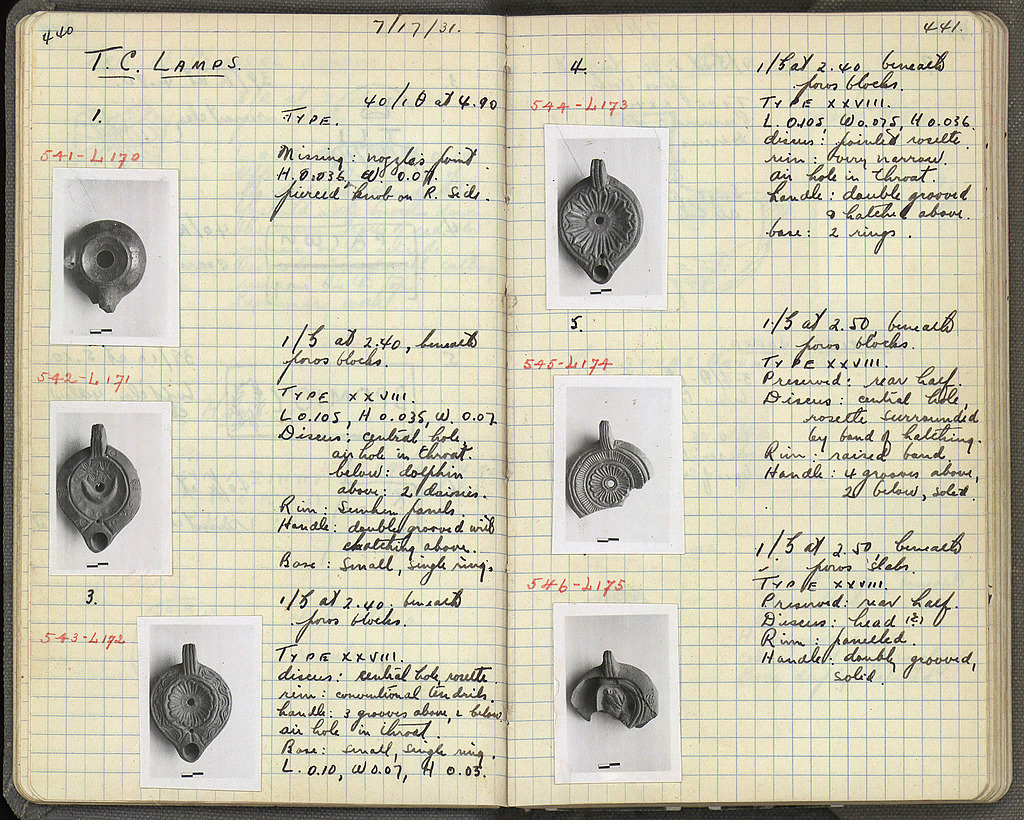 440
7/17/31.
T.C. LAMPS.
1.
40/ΙΘ at 4.90
TYPE.
541-L170
Missing: nozzle's point
H. 0.036 W 0.07.
pierced knob on R. Side.
1/Ϛ at 2.40, beneath
poros blocks.
542-L171
TYPE XXVIII.
L 0.105, H 0.035, W. 0.07
Discus: central hole,
air hole in throat.
below: dolphin
above: 2 daisies.
Rim: Sunken panels.
Handle: double grooved with
hatching above.
Base: Small, single ring.
3.
1/Ϛ at 2.40. beneath
poros blocks.
543-L172
TYPE XXVIII.
discus: central hole, rosette.
rim: conventional tendrils.
handle: 3 grooves above, 2 below
air hole in throat.
Base: small, single ring.
L. 0.10, W 0.07, H 0.03.
441.
4.
1/Ϛ at 2.40, beneath
poros blocks.
544-L173
TYPE XXVIII.
L. 0.105, W 0.075, H 0.036.
discus: pointed rosette.
rim: very narrow.
air hole in throat.
handle: double grooved
& hatched above.
base: 2 rings.
5.
1/Ϛ at 2.50, beneath
poros blocks.
545-L174
TYPE XXVIII.
Preserved: rear half.
Discus: central hole,
rosette surrounded
by band of hatching.
Rim: raised band.
Handle: 4 grooves above,
2 below, solid.
1/Ϛ at 2.50, beneath
poros slabs.
546-L175
TYPE XXVIII.
Preserved: rear half.
Discus: head (?)
Rim: panelled.
Handle: double grooved,
solid